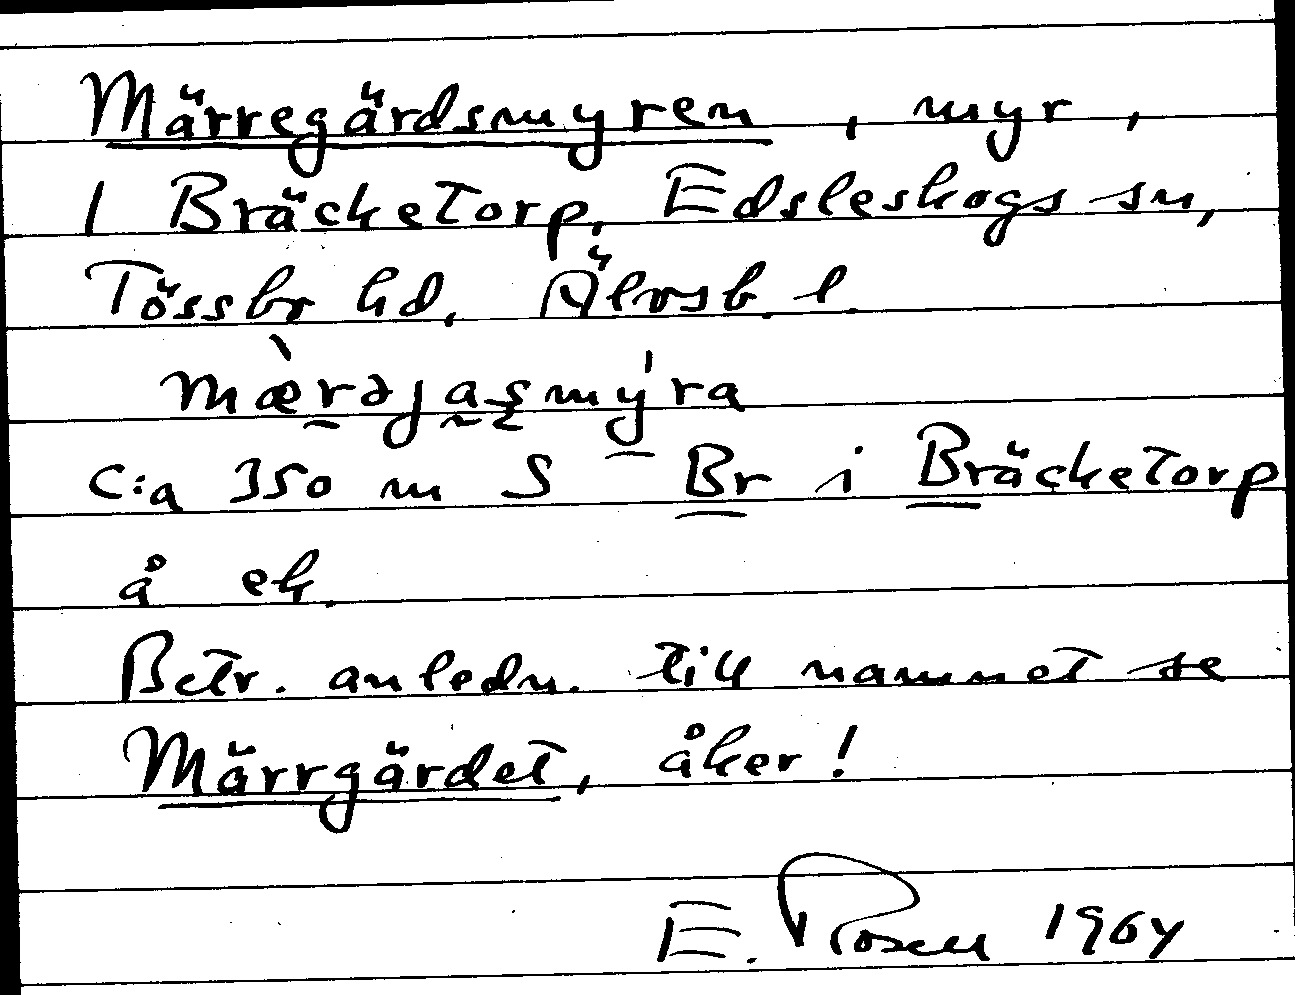 Märregärdsmyren, myr,
i Bräcketorp, Edsleskogs sn,
Tössbo hd, Älvsb. l.
mæ̀rəjasmýra
c:a 350 m S Br i Bräcketorp
å ek.
Betr. anledn. till namnet se
Märrgärdet, åker!
E. Rosen 1964